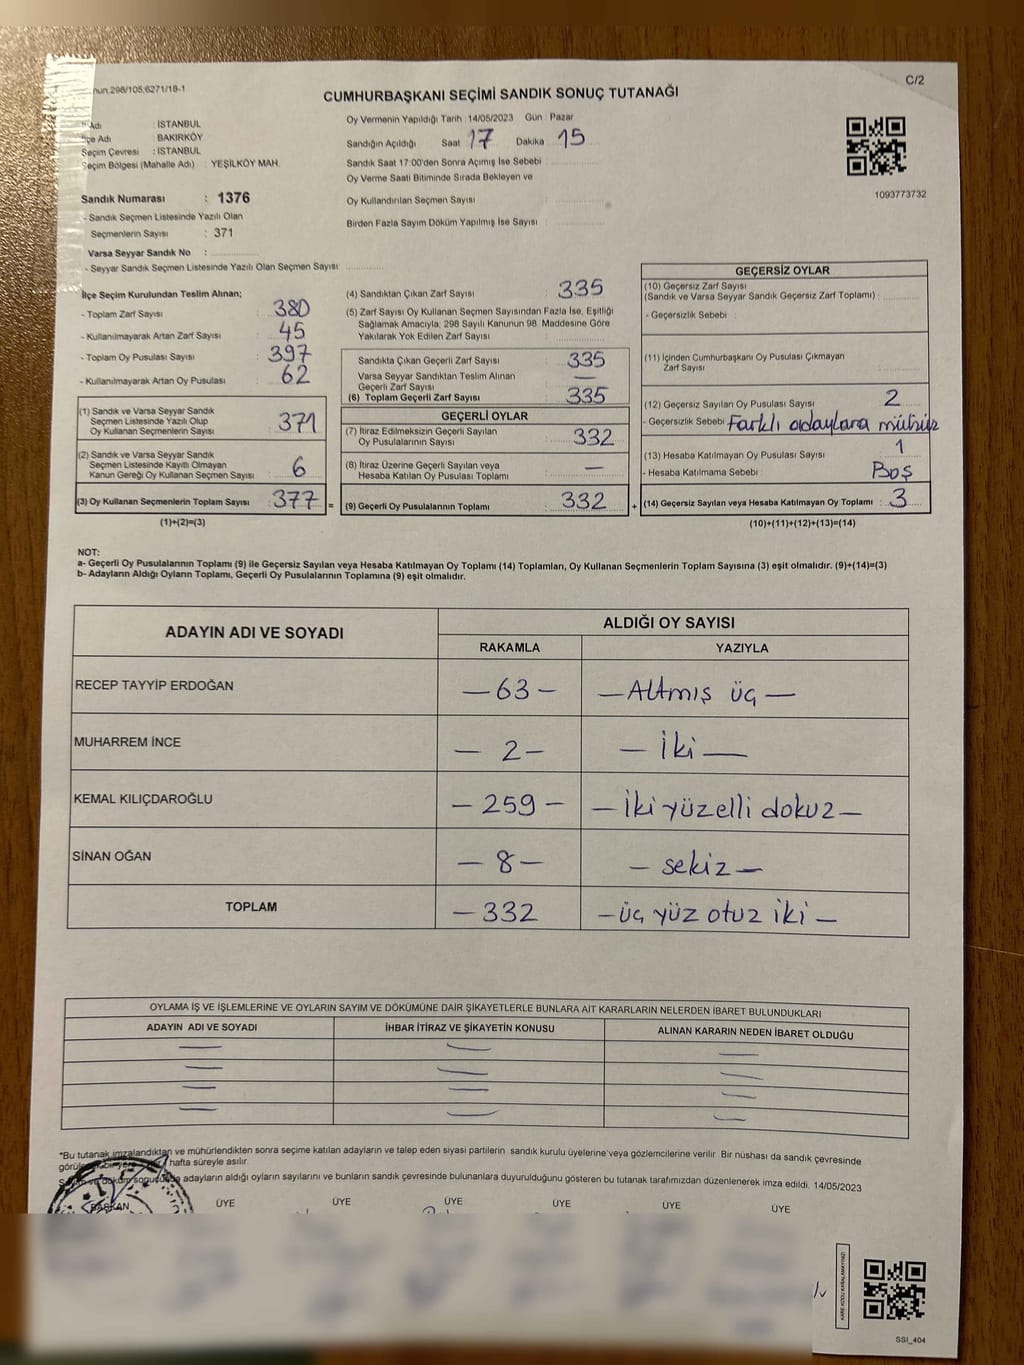 nun:298/105;6271/18-1
C/2
CUMHURBAŞKANI SEÇİMİ SANDIK SONUÇ TUTANAĞI
İl Adı : İSTANBUL
İlçe Adı : BAKIRKÖY
Seçim Çevresi : İSTANBUL
Seçim Bölgesi (Mahalle Adı) : YEŞİLKÖY MAH.
Sandık Numarası : 1376
- Sandık Seçmen Listesinde Yazılı Olan
Seçmenlerin Sayısı : 371
Varsa Seyyar Sandık No :
- Seyyar Sandık Seçmen Listesinde Yazılı Olan Seçmen Sayısı
Oy Vermenin Yapıldığı Tarih : 14/05/2023 Gün : Pazar
Sandığın Açıldığı Saat 17 Dakika 15
Sandık Saat 17:00'den Sonra Açımış İse Sebebi
Oy Verme Saati Bitiminde Sırada Bekleyen ve
Oy Kullandırılan Seçmen Sayısı :
Birden Fazla Sayım Döküm Yapılmış İse Sayısı :
1093773732
İlçe Seçim Kurulundan Teslim Alınan;
- Toplam Zarf Sayısı : 380
- Kullanılmayarak Artan Zarf Sayısı : 45
- Toplam Oy Pusulası Sayısı : 397
- Kullanılmayarak Artan Oy Pusulası : 62
(1) Sandık ve Varsa Seyyar Sandık
Seçmen Listesinde Yazılı Olup
Oy Kullanan Seçmenlerin Sayısı : 371
(2) Sandık ve Varsa Seyyar Sandık
Seçmen Listesinde Kayıtlı Olmayan
Kanun Gereği Oy Kullanan Seçmen Sayısı : 6
(3) Oy Kullanan Seçmenlerin Toplam Sayısı : 377 =
(1)+(2)=(3)
(4) Sandıktan Çıkan Zarf Sayısı : 335
(5) Zarf Sayısı Oy Kullanan Seçmen Sayısından Fazla İse, Eşitliği
Sağlamak Amacıyla, 298 Sayılı Kanunun 98. Maddesine Göre
Yakılarak Yok Edilen Zarf Sayısı :
Sandıkta Çıkan Geçerli Zarf Sayısı : 335
Varsa Seyyar Sandıktan Teslim Alınan
Geçerli Zarf Sayısı : —
(6) Toplam Geçerli Zarf Sayısı : 335
GEÇERLİ OYLAR
(7) İtiraz Edilmeksizin Geçerli Sayılan
Oy Pusulalarının Sayısı : 332
(8) İtiraz Üzerine Geçerli Sayılan veya
Hesaba Katılan Oy Pusulası Toplamı : —
(9) Geçerli Oy Pusulalarının Toplamı : 332 +
GEÇERSİZ OYLAR
(10) Geçersiz Zarf Sayısı
(Sandık ve Varsa Seyyar Sandık Geçersiz Zarf Toplamı) :
- Geçersizlik Sebebi :
(11) İçinden Cumhurbaşkanı Oy Pusulası Çıkmayan
Zarf Sayısı :
(12) Geçersiz Sayılan Oy Pusulası Sayısı : 2
- Geçersizlik Sebebi : Farklı adaylara mühür
(13) Hesaba Katılmayan Oy Pusulası Sayısı : 1
- Hesaba Katılmama Sebebi : Boş
(14) Geçersiz Sayılan veya Hesaba Katılmayan Oy Toplamı : 3
(10)+(11)+(12)+(13)=(14)
NOT:
a- Geçerli Oy Pusulalarının Toplamı (9) ile Geçersiz Sayılan veya Hesaba Katılmayan Oy Toplamı (14) Toplamları, Oy Kullanan Seçmenlerin Toplam Sayısına (3) eşit olmalıdır. (9)+(14)=(3)
b- Adayların Aldığı Oyların Toplamı, Geçerli Oy Pusulalarının Toplamına (9) eşit olmalıdır.
ADAYIN ADI VE SOYADI
ALDIĞI OY SAYISI
RAKAMLA YAZIYLA
RECEP TAYYİP ERDOĞAN — 63 — — Altmış üç —
MUHARREM İNCE — 2 — — İki —
KEMAL KILIÇDAROĞLU — 259 — — İki yüz elli dokuz —
SİNAN OĞAN — 8 — — sekiz —
TOPLAM — 332 — üç yüz otuz iki —
OYLAMA İŞ VE İŞLEMLERİNE VE OYLARIN SAYIM VE DÖKÜMÜNE DAİR ŞİKAYETLERLE BUNLARA AİT KARARLARIN NELERDEN İBARET BULUNDUKLARI
ADAYIN ADI VE SOYADI İHBAR İTİRAZ VE ŞİKAYETİN KONUSU ALINAN KARARIN NEDEN İBARET OLDUĞU
*Bu tutanak imzalandıktan ve mühürlendikten sonra seçime katılan adayların ve talep eden siyasi partilerin sandık kurulu üyelerine veya gözlemcilerine verilir. Bir nüshası da sandık çevresinde
hafta süreyle asılır.
adayların aldığı oyların sayılarını ve bunların sandık çevresinde bulunanlara duyurulduğunu gösteren bu tutanak tarafımızdan düzenlenerek imza edildi. 14/05/2023
BAŞKAN ÜYE ÜYE ÜYE ÜYE ÜYE ÜYE
KARE KODU KARALAMAYINIZ!
SSI_404